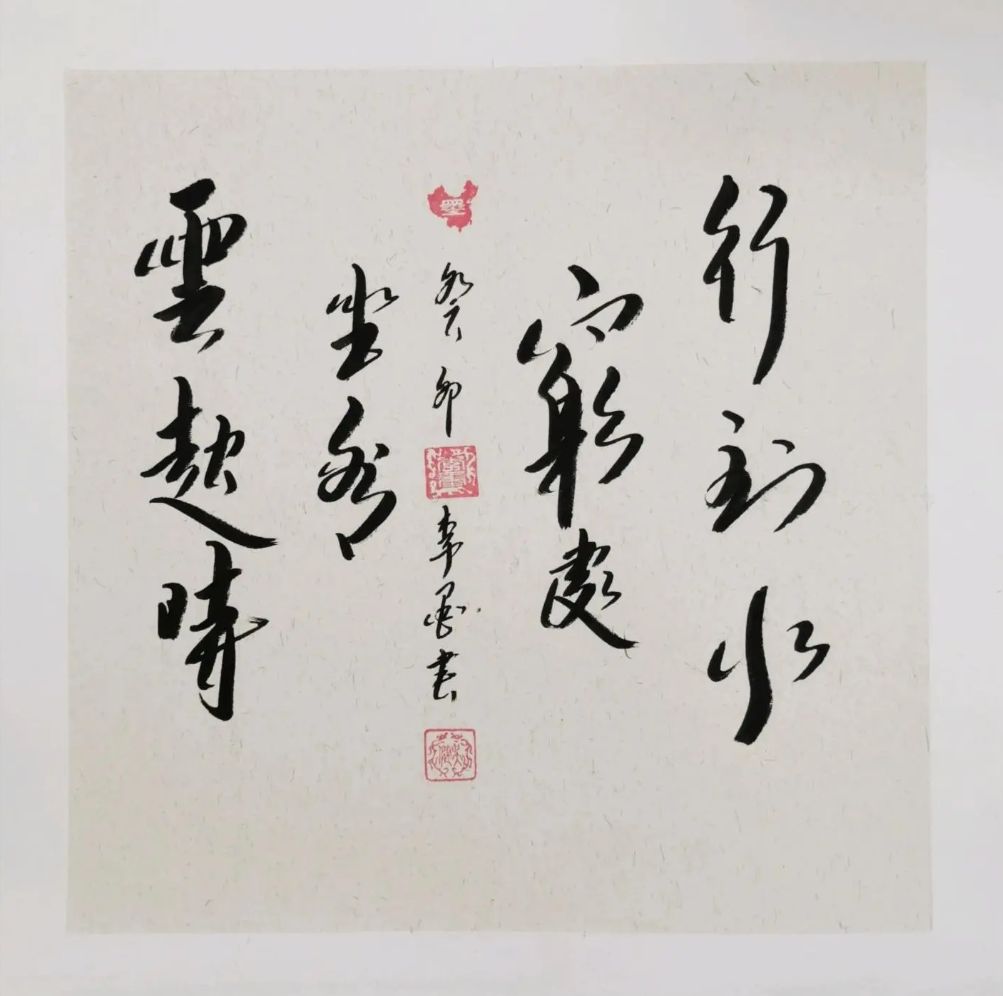 行到水
窮處
墨
癸卯
李墨書
坐看
雲起時